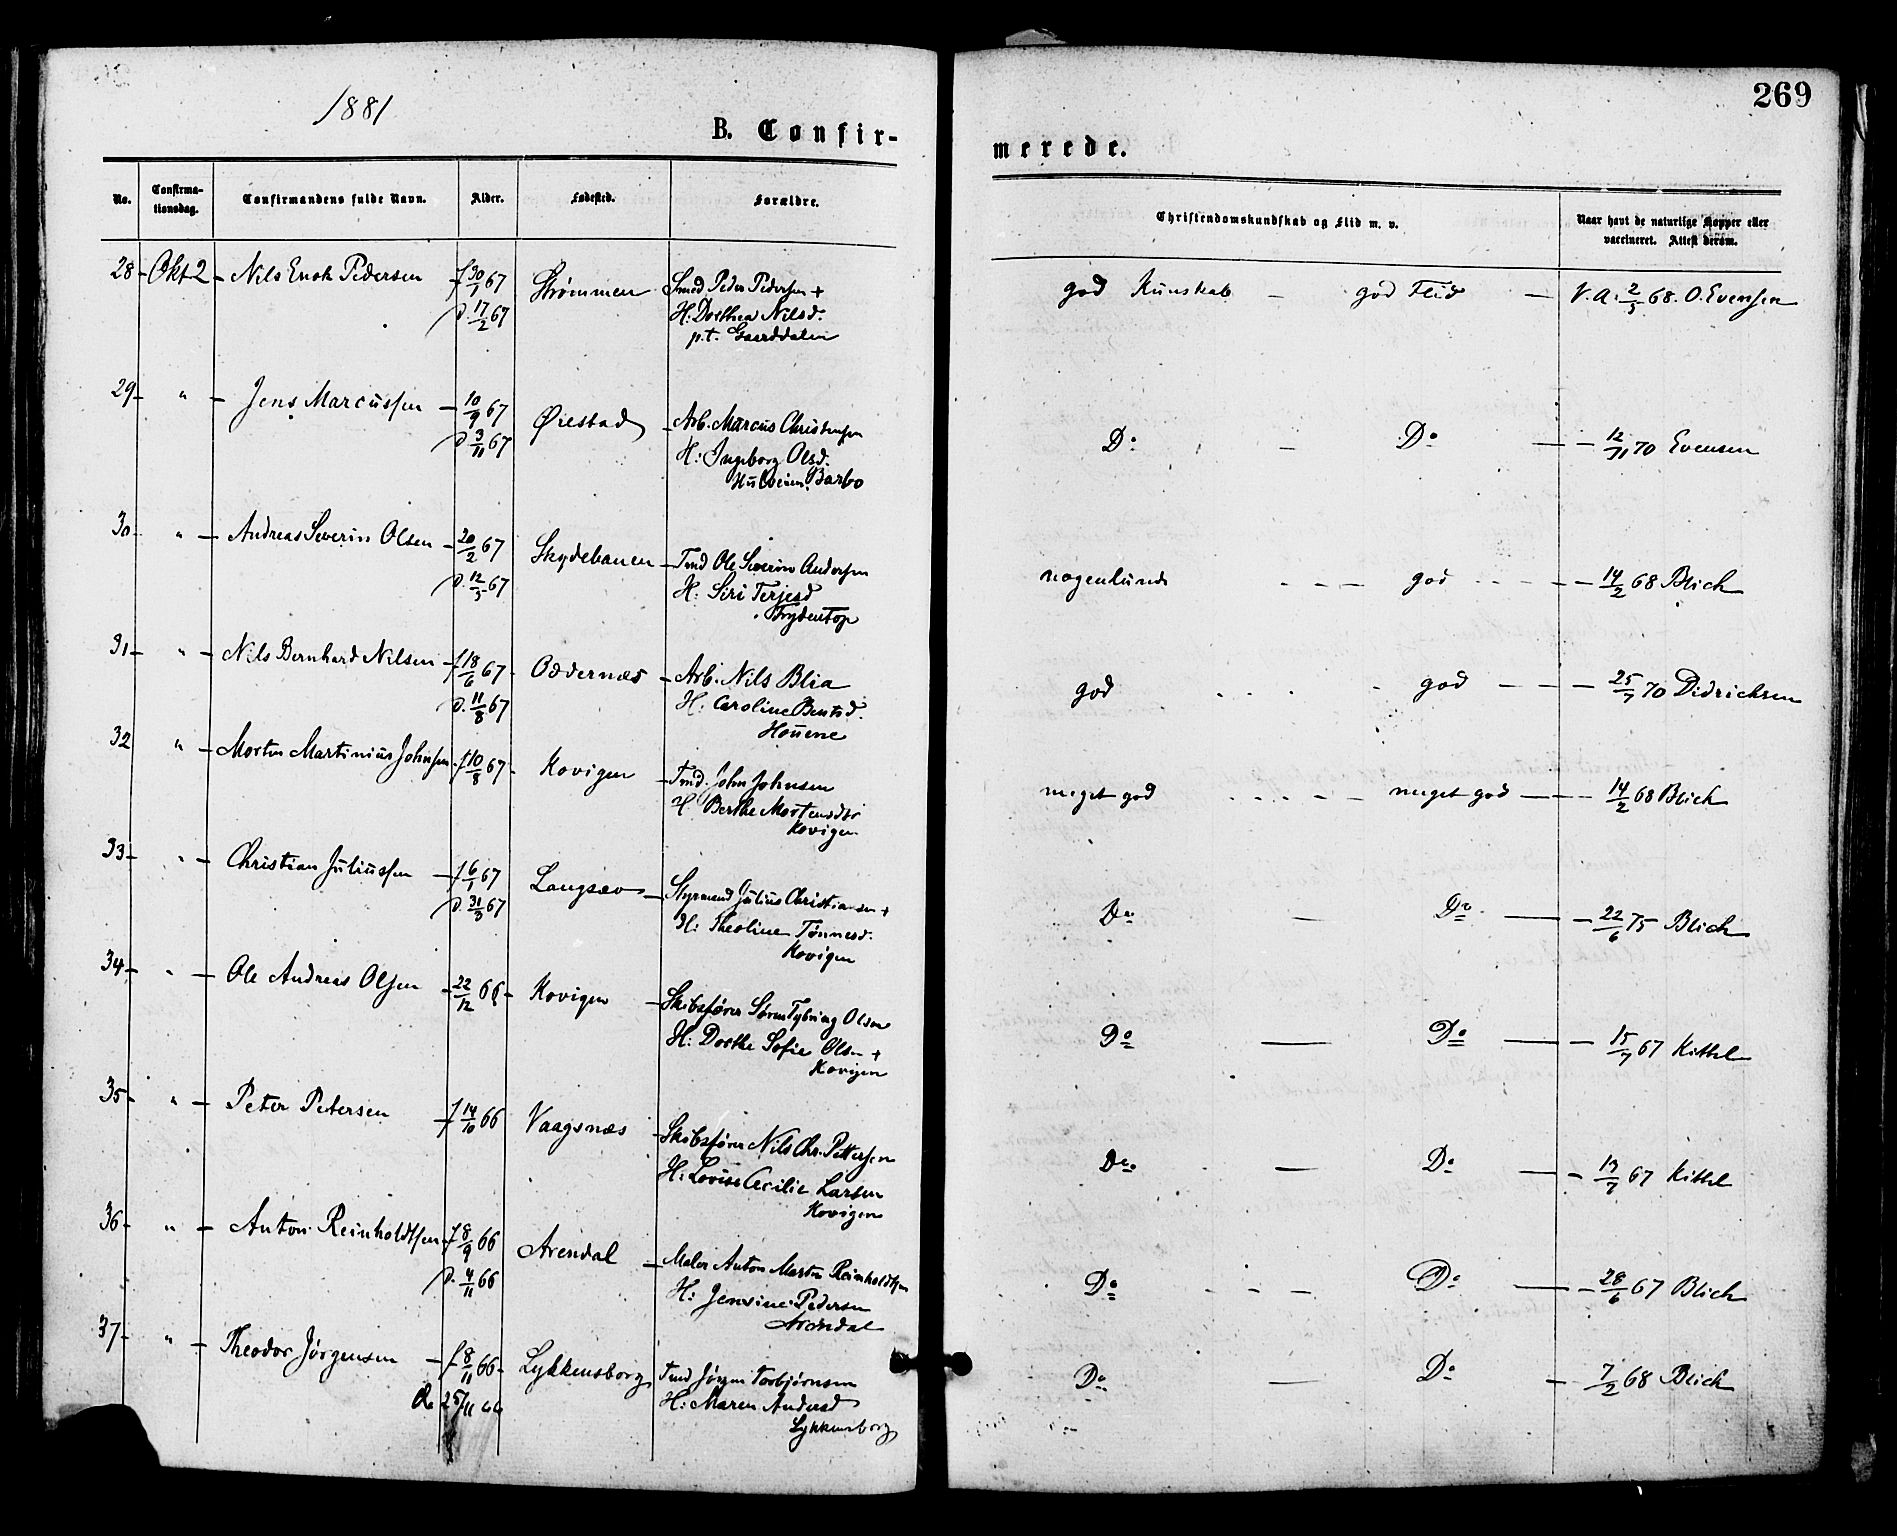 1881
269
B. Confir-
merede.
No.
Confirma-
tionsdag.
Confirmandens fulde Navn.
Alder.
Fødested.
Forældre.
Christendomskundskab og Flid m. v.
Naar havt de naturlige Kopper eller
vaccineret. Attest derom.
28 - Okt 2 - Nils Enok Pedersen f 30/1 67 Strømmen Smed Peder Pedersen + god Kunskab - god Flid - V.A. 2/5 68. O. Evensen
d. 17/2 67 H: Dorthea Nilsd.
p.t. Gaarddalen
29 - " - Jens Marcussen - 10/9 67 Øiestad - Arb. Marcus Christensen Do - Do - 12/11 70 Evensen
d. 3/11 67 H: Ingeborg Olsd.
Barbo
30 - " - Andreas Severin Olsen - 20/2 67 Skydebanen - Tmd Ole Severin Andersen nogenlunde - - - god - - 14/2 68 Blich
d. 12/5 67 H: Siri Terjesd
Frydentop
31 - " - Nils Bernhard Nilsen - f 18/6 67 - Oddernæs - Arb. Nils Blia god - god - - 25/7 70 Didrichsen
d. 11/8 67 H: Caroline Bentsd.
Houene
32 " - Morten Martinius Johnsen - f 10/8 67 - Kovigen - Tmd. John Johnsen meget god - - - meget god - - 14/2 68 Blich
H Berthe Mortensdtr
Kovigen
33 - " - Christian Juliussen - f 6/1 67 Langsæv - Styrmand Julius Christiansen + Do - Do - 22/6 75 Blich
d. 31/3 67 H: Theoline Tønnesd.
Kovigen
34 - " - Ole Andreas Olsen - 22/12 66 - Kovigen - Skibsfører Søren Tybring Olsen Do - Do - 15/7 67 Kittel
H: Dorthe Sofie Olsen +
Kovigen
35 - " - Peter Petersen f 14/10 66 Vaagsnæs - Skibsfører Nils Chr. Pettersen Do - Do - 13/7 67 Kittel
H: Lovise Cecilie Larsen
Kovigen
36 - " - Anton Reinholdtsen f 8/9 66 Arendal - Maler Anton Martin Reinholdtsen Do - - - Do - 28/6 67 Blich
d. 4/11 66 H: Jensine Pedersen
Arendal
37 - " - Theodor Jørgensen - f 8/11 66 - Lykkensborg Tmd Jørgen Torbjørnsen Do - Do - 7/2 68 Blich
d. 25/11 66 H: Maren Andersd
Lykkensborg